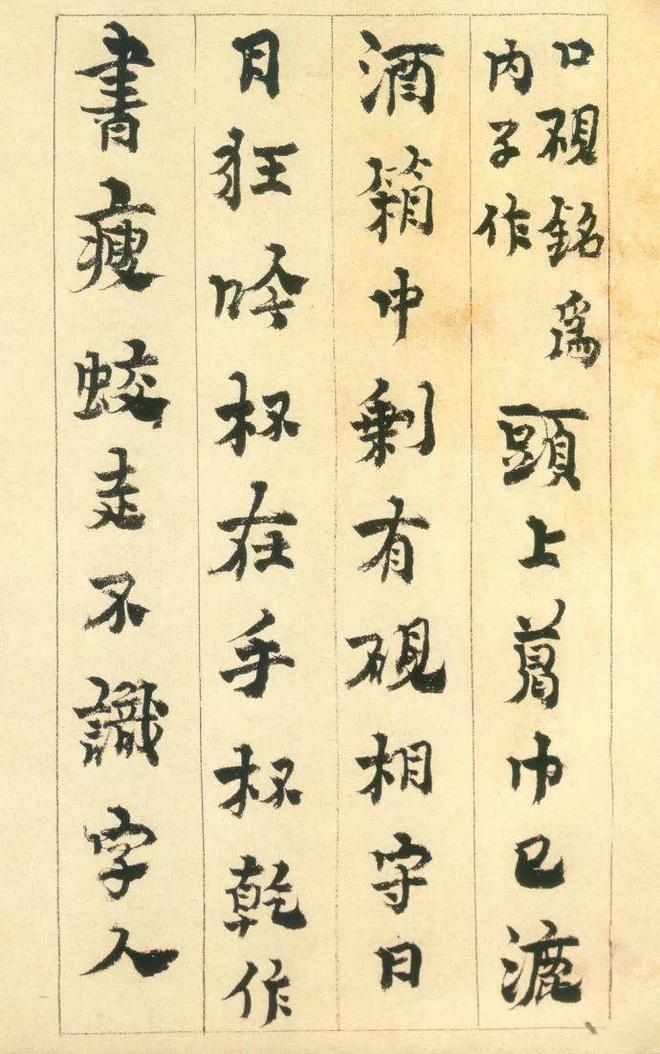 口硯銘爲
内子作
頭上葛巾已漉
酒箱中剩有硯相守日
月狂吟杯在手杯乾作
書瘦蛟走不識字人